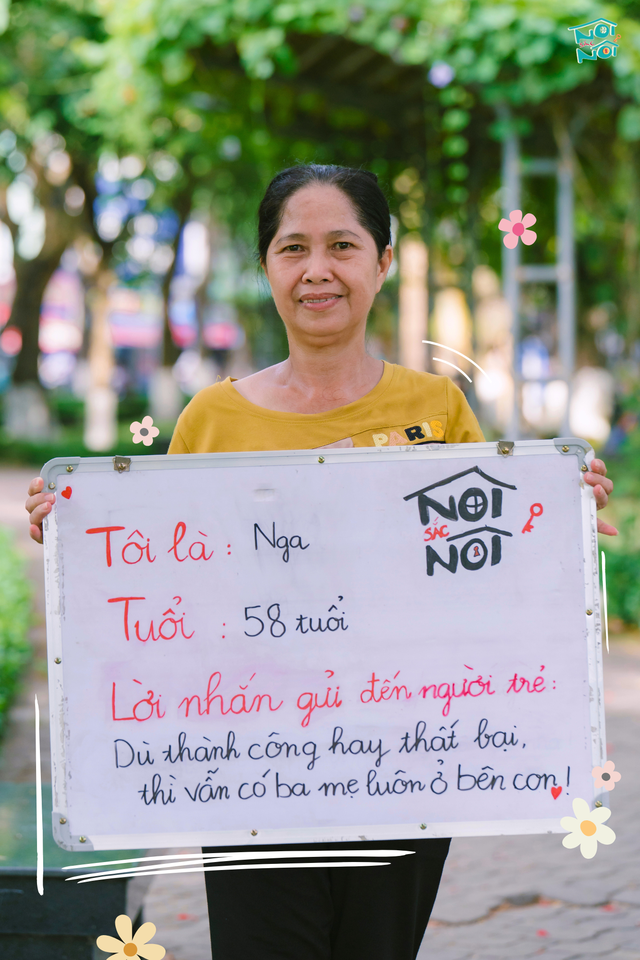 NƠI
SẮC
NƠI
PARIS
NƠI
SẮC
NƠI
Tôi là : Nga
Tuổi : 58 tuổi
Lời nhắn gửi đến người trẻ:
Dù thành công hay thất bại,
thì vẫn có ba mẹ luôn ở bên con!